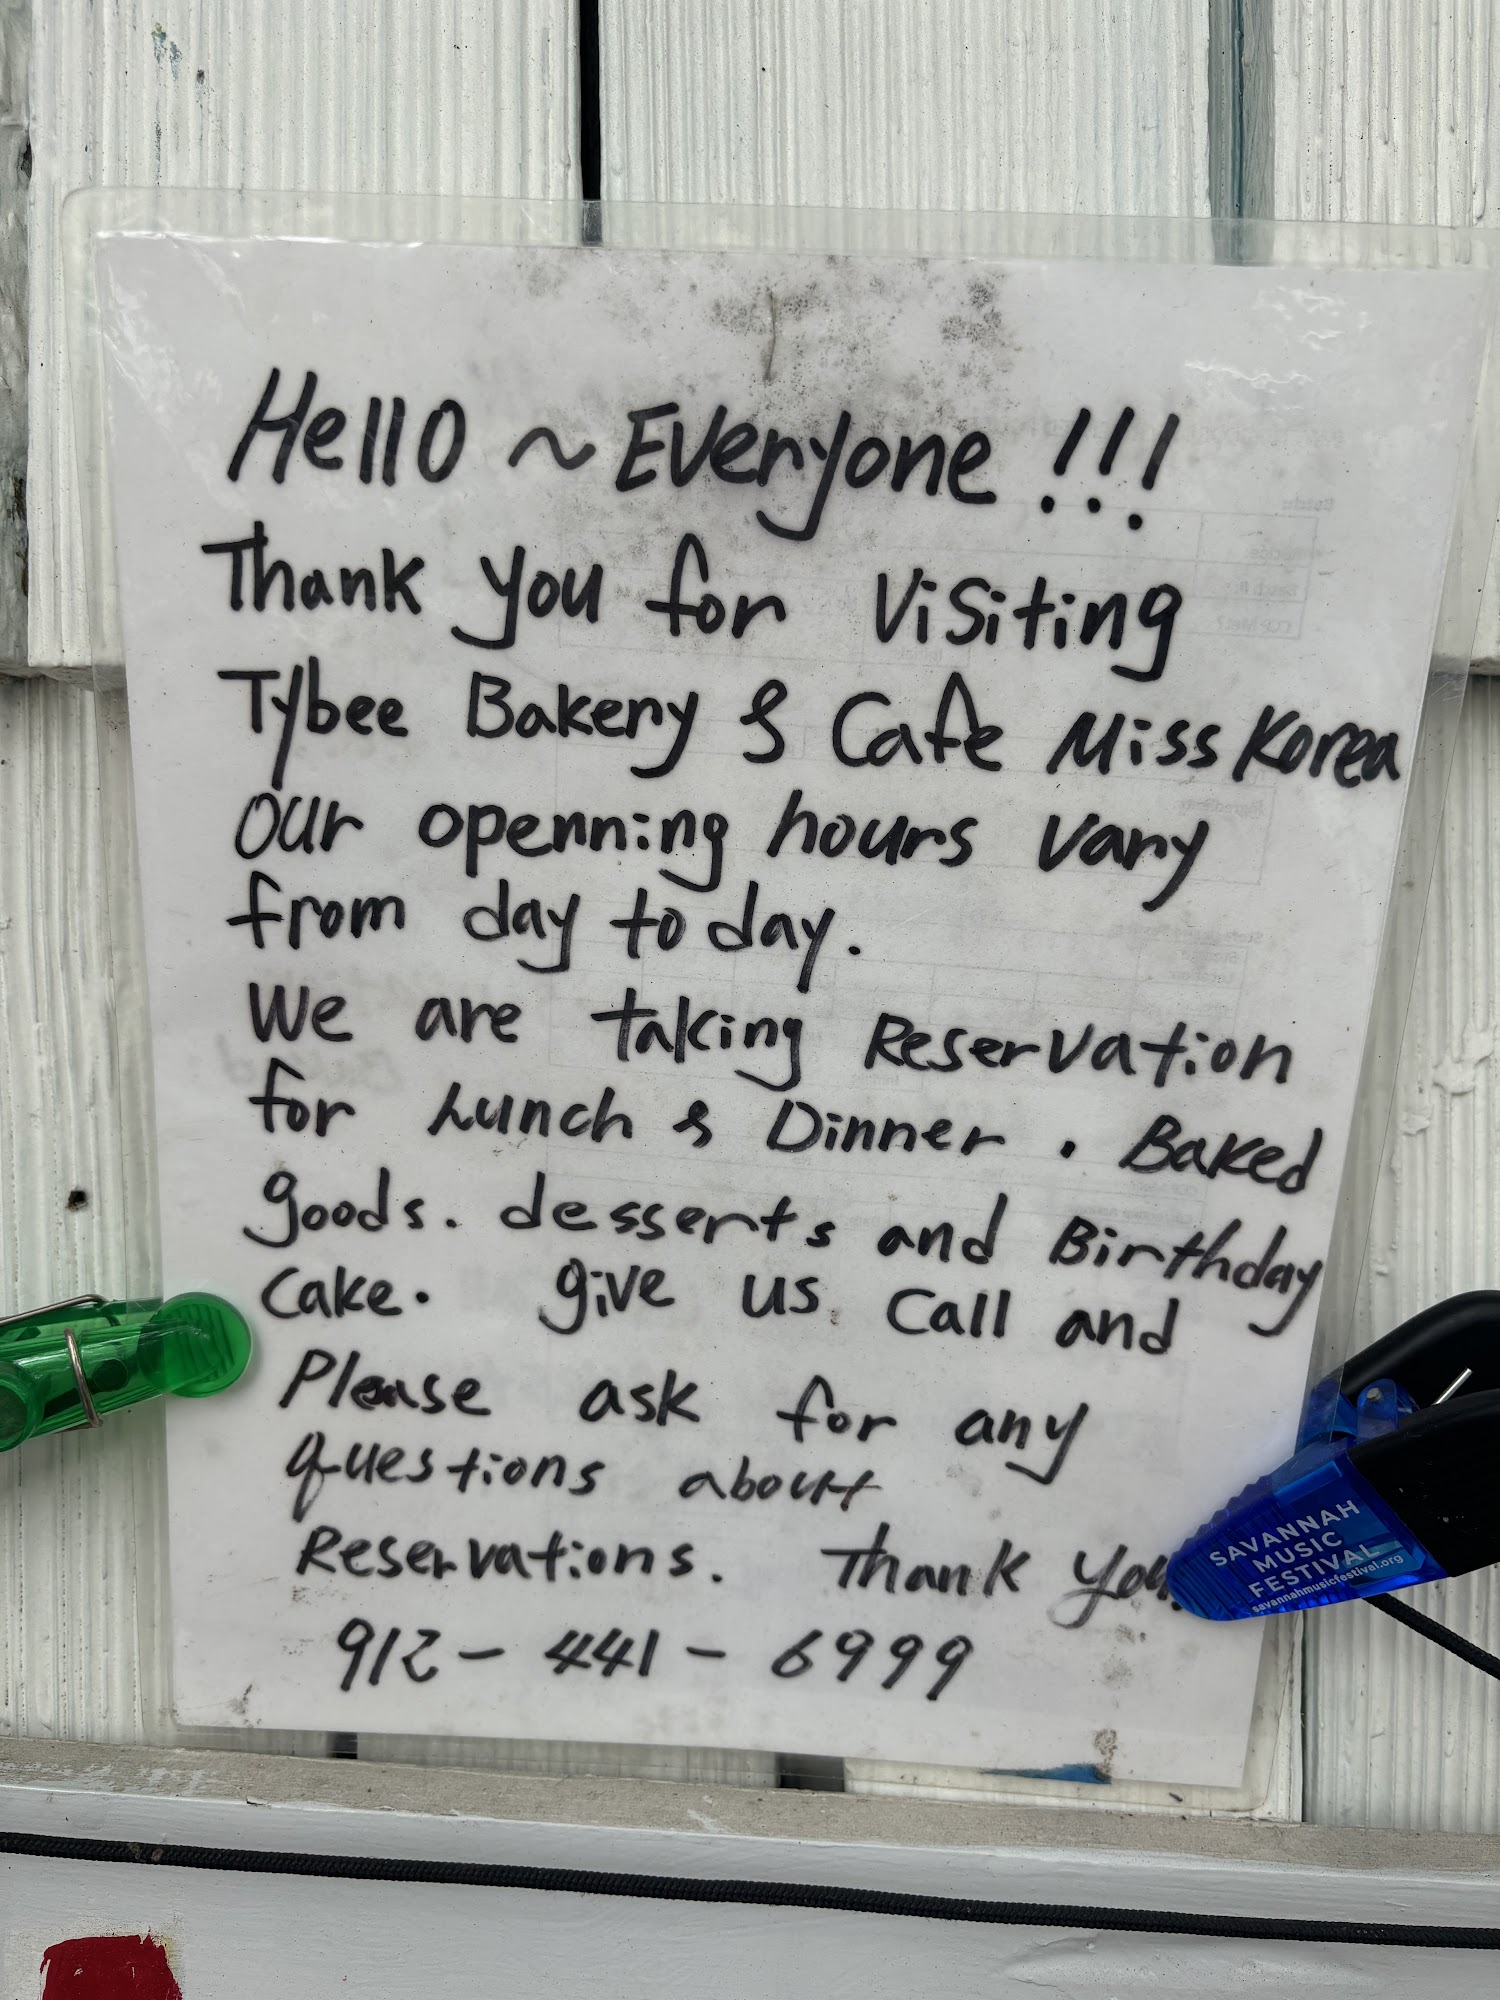 Hello ~ Everyone !!!
Thank you for Visiting
Tybee Bakery & Cafe Miss Korea
Our openning hours vary
from day to day.
We are taking Reservation
for Lunch & Dinner. Baked
goods. desserts and Birthday
Cake. give us Call and
Please ask for any
questions about
Reservations. Thank you.
912-441-6999
SAVANNAH
MUSIC
FESTIVAL
savannahmusicfestival.org